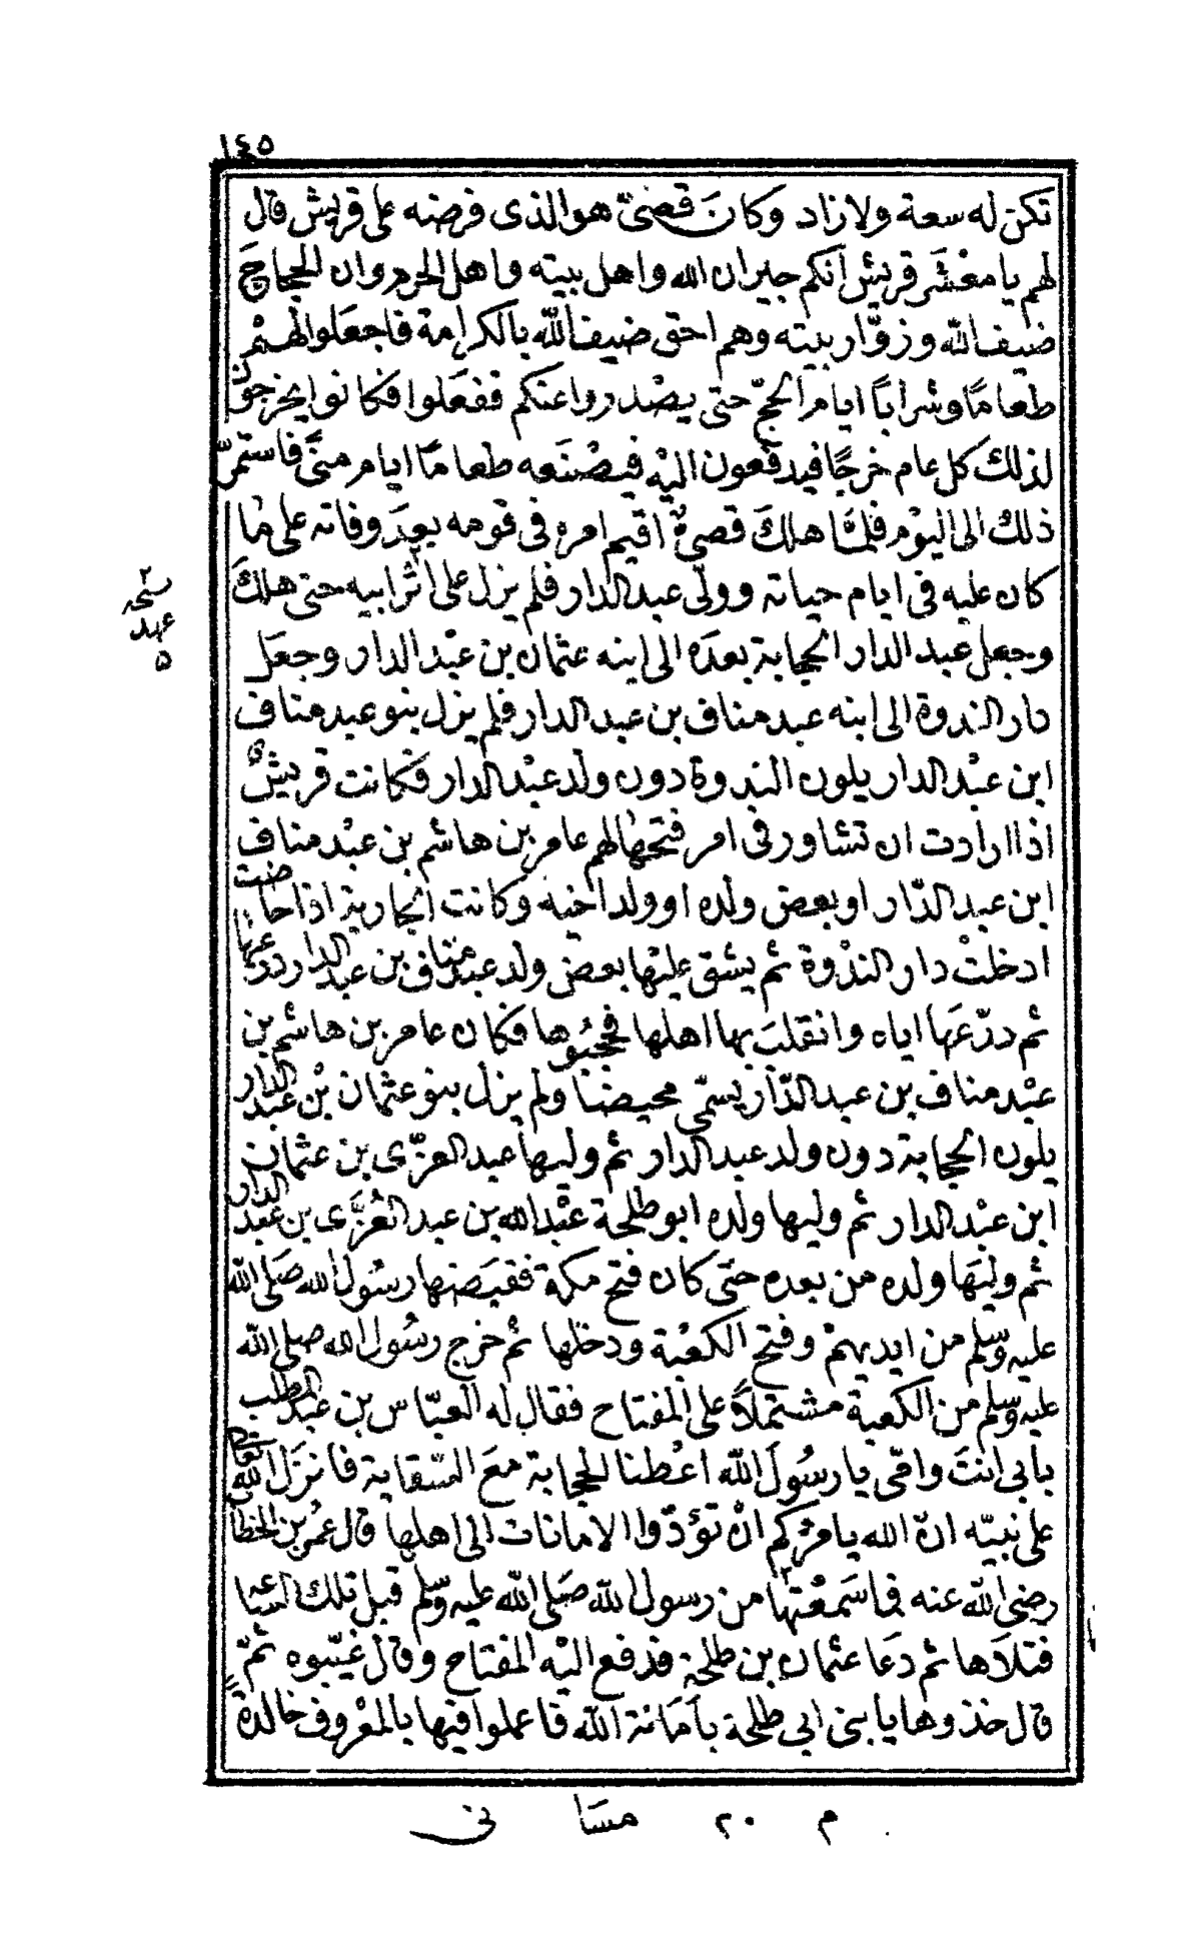 ١٤٥
تكن له سعة ولا زاد وكانَ قصَىّ هو الذى فرضه على قريش قال
لهم يا معْشَر قريش انكم جيران الله واهل بيته واهل الحرم وان الحجاجَ
ضيف الله وزوّار بيته وهم احق ضيف اللّه بالكرامة فاجعَلوا لهمْ
طعامًا وشرابًا ايام الحجّ حتى يصْدروا عنكم ففعَلوا فكانوا يخرجون
لذلك كل عام خرجًا فيدفعون اليْه فيصْنَعه طعامًا ايام منىً فاستمرّ
ذلك الى اليوْم فلمَّا هلكَ قصىٌ اقيم امره فى قومه بعدَ وفاته على ما
كان عليه فى ايام حياته وولّى عبد الدار فلم يزل على اثر ابيه حتى هلكَ
وجعل عبد الدار الحجابة بعدَه الى ابنه عثمان بن عبْد الدار وجعَل
دار الندوة الى ابنه عبد مناف بن عبد الدار فلم يزل بنو عبد مناف
ابن عبْد الدار يلون الندوة دون ولد عبْد الدار فكانت قريشٌ
اذا ارادت ان تشاور فى امر فتحها لهم عامر بن هاشم بن عبْد مناف
ابن عبد الدّار او بعض ولده او ولد اخيه وكانت الجارية اذا حاضت
ادخلتْ دار الندْوة ثم يشق عليْها بعض ولد عبد مناف بن عبد الدار درعها
ثم درّعَها اياه وانقلبَ بها اهلها فحجبُوها فكان عامر بن هاشم بن
عبْد مناف بن عبد الدّار يسمّى محيضا ولم يزل بنو عثمان بْن عبد الدار
يلون الحجابة دون ولد عبد الدار ثم وليها عبد العزّى بن عثمان
ابن عبْد الدار ثم وليها ولده ابو طلحة عبْد الله بن عبد العُزَّى بن عبد الدار
ثم وليَها ولده من بعده حتّى كان فتح مكة فقبَضها رسُول الله صَلى الله
عليه وسلم من ايديهمْ وفتح الكعْبة ودخلها ثم خرج رسُول الله صلى اللّه
عليه وسلم من الكعبة مشتملاً على المفتاح فقال له العبّاس بن عبد المطلب
بابى انتَ وامّى يا رسُولَ اللّه اعْطنا الحجابة معَ السّقاية فانزَل الله تعالى
على نبيّه انّ الله يامرُكم انْ تؤدّوا الامانات الى اهلها قال عمُر بن الخطا
رضى اللّه عنه فما سَمعْتها من رسول اللّه صَلى اللّه عليه وسلم قبل تلك الساعة
فتلاَها ثم دَعا عثمان بن طلحة فدفع اليْه المفتاح وقال غيّبوه ثمّ
قال خذوها يا بنى ابى طلحة بأمَانة اللّه فاعملوا فيها بالمعْروف خالدة
نسخه
عهد
٥
م ٢٠ مسَا نى